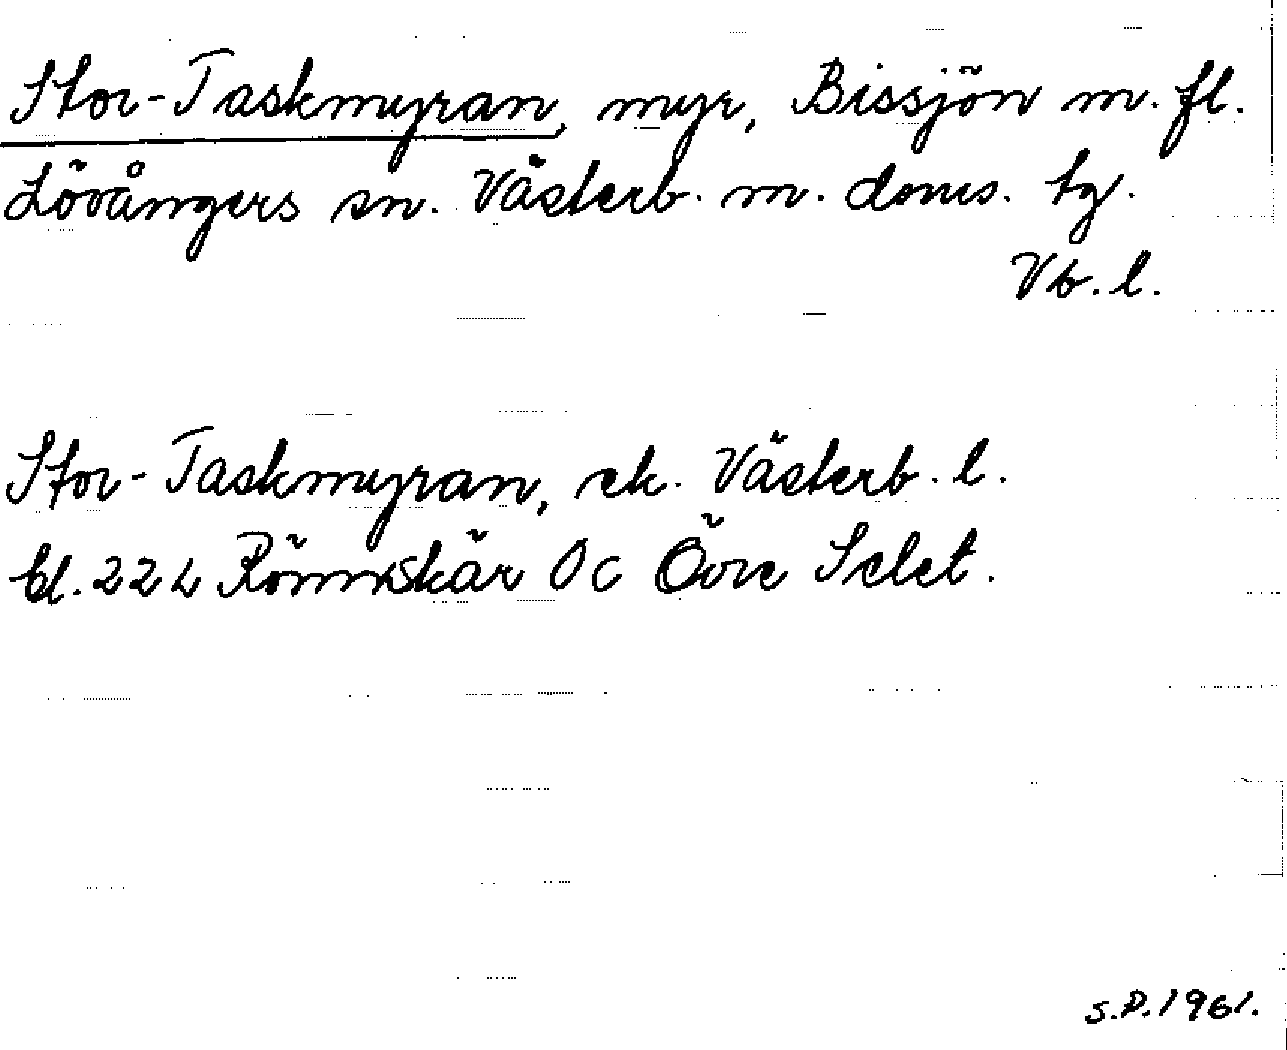 Stor-Taskmyran, myr, Bissjön m. fl.
Lövångers sn. Västerb. m. doms. tg.
Vb. l.
Stor-Taskmyran, ek. Västerb. l.
bl. 22 L Rönnskär Oc Övre Selet.
S.D. 1961.